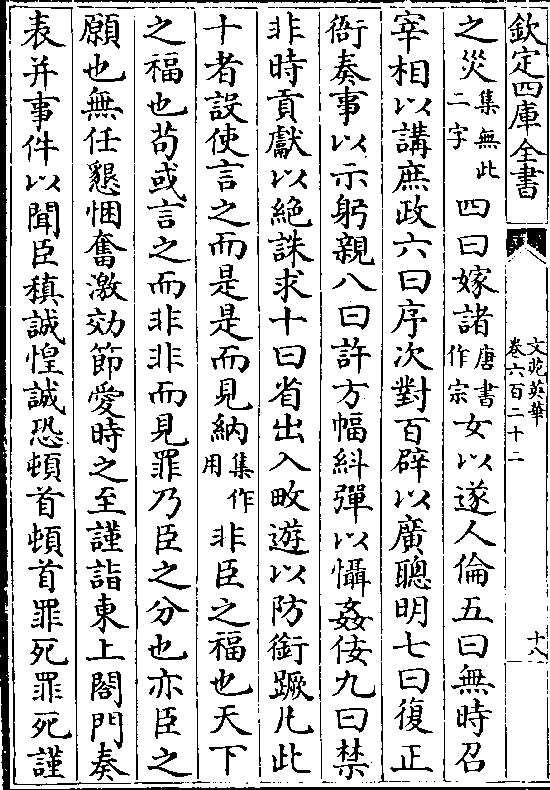 欽定四庫全書
文苑英華
卷六百二十二
十八
之災集無此二字四曰嫁諸唐書作宗女以遂人倫五曰無時召
宰相以講庶政六曰序次對百辟以廣聰明七曰復正
衙奏事以示躬親八曰許方幅糾彈以懾姦佞九曰禁
非時貢獻以絶誅求十曰省出入畋遊以防銜蹶凡此
十者設使言之而是是而見納集作用非臣之福也天下
之福也苟或言之而非非而見罪乃臣之分也亦臣之
願也無任懇悃奮激効節愛時之至謹詣東上閤門奏
表并事件以聞臣稹誠惶誠恐頓首頓首罪死罪死謹